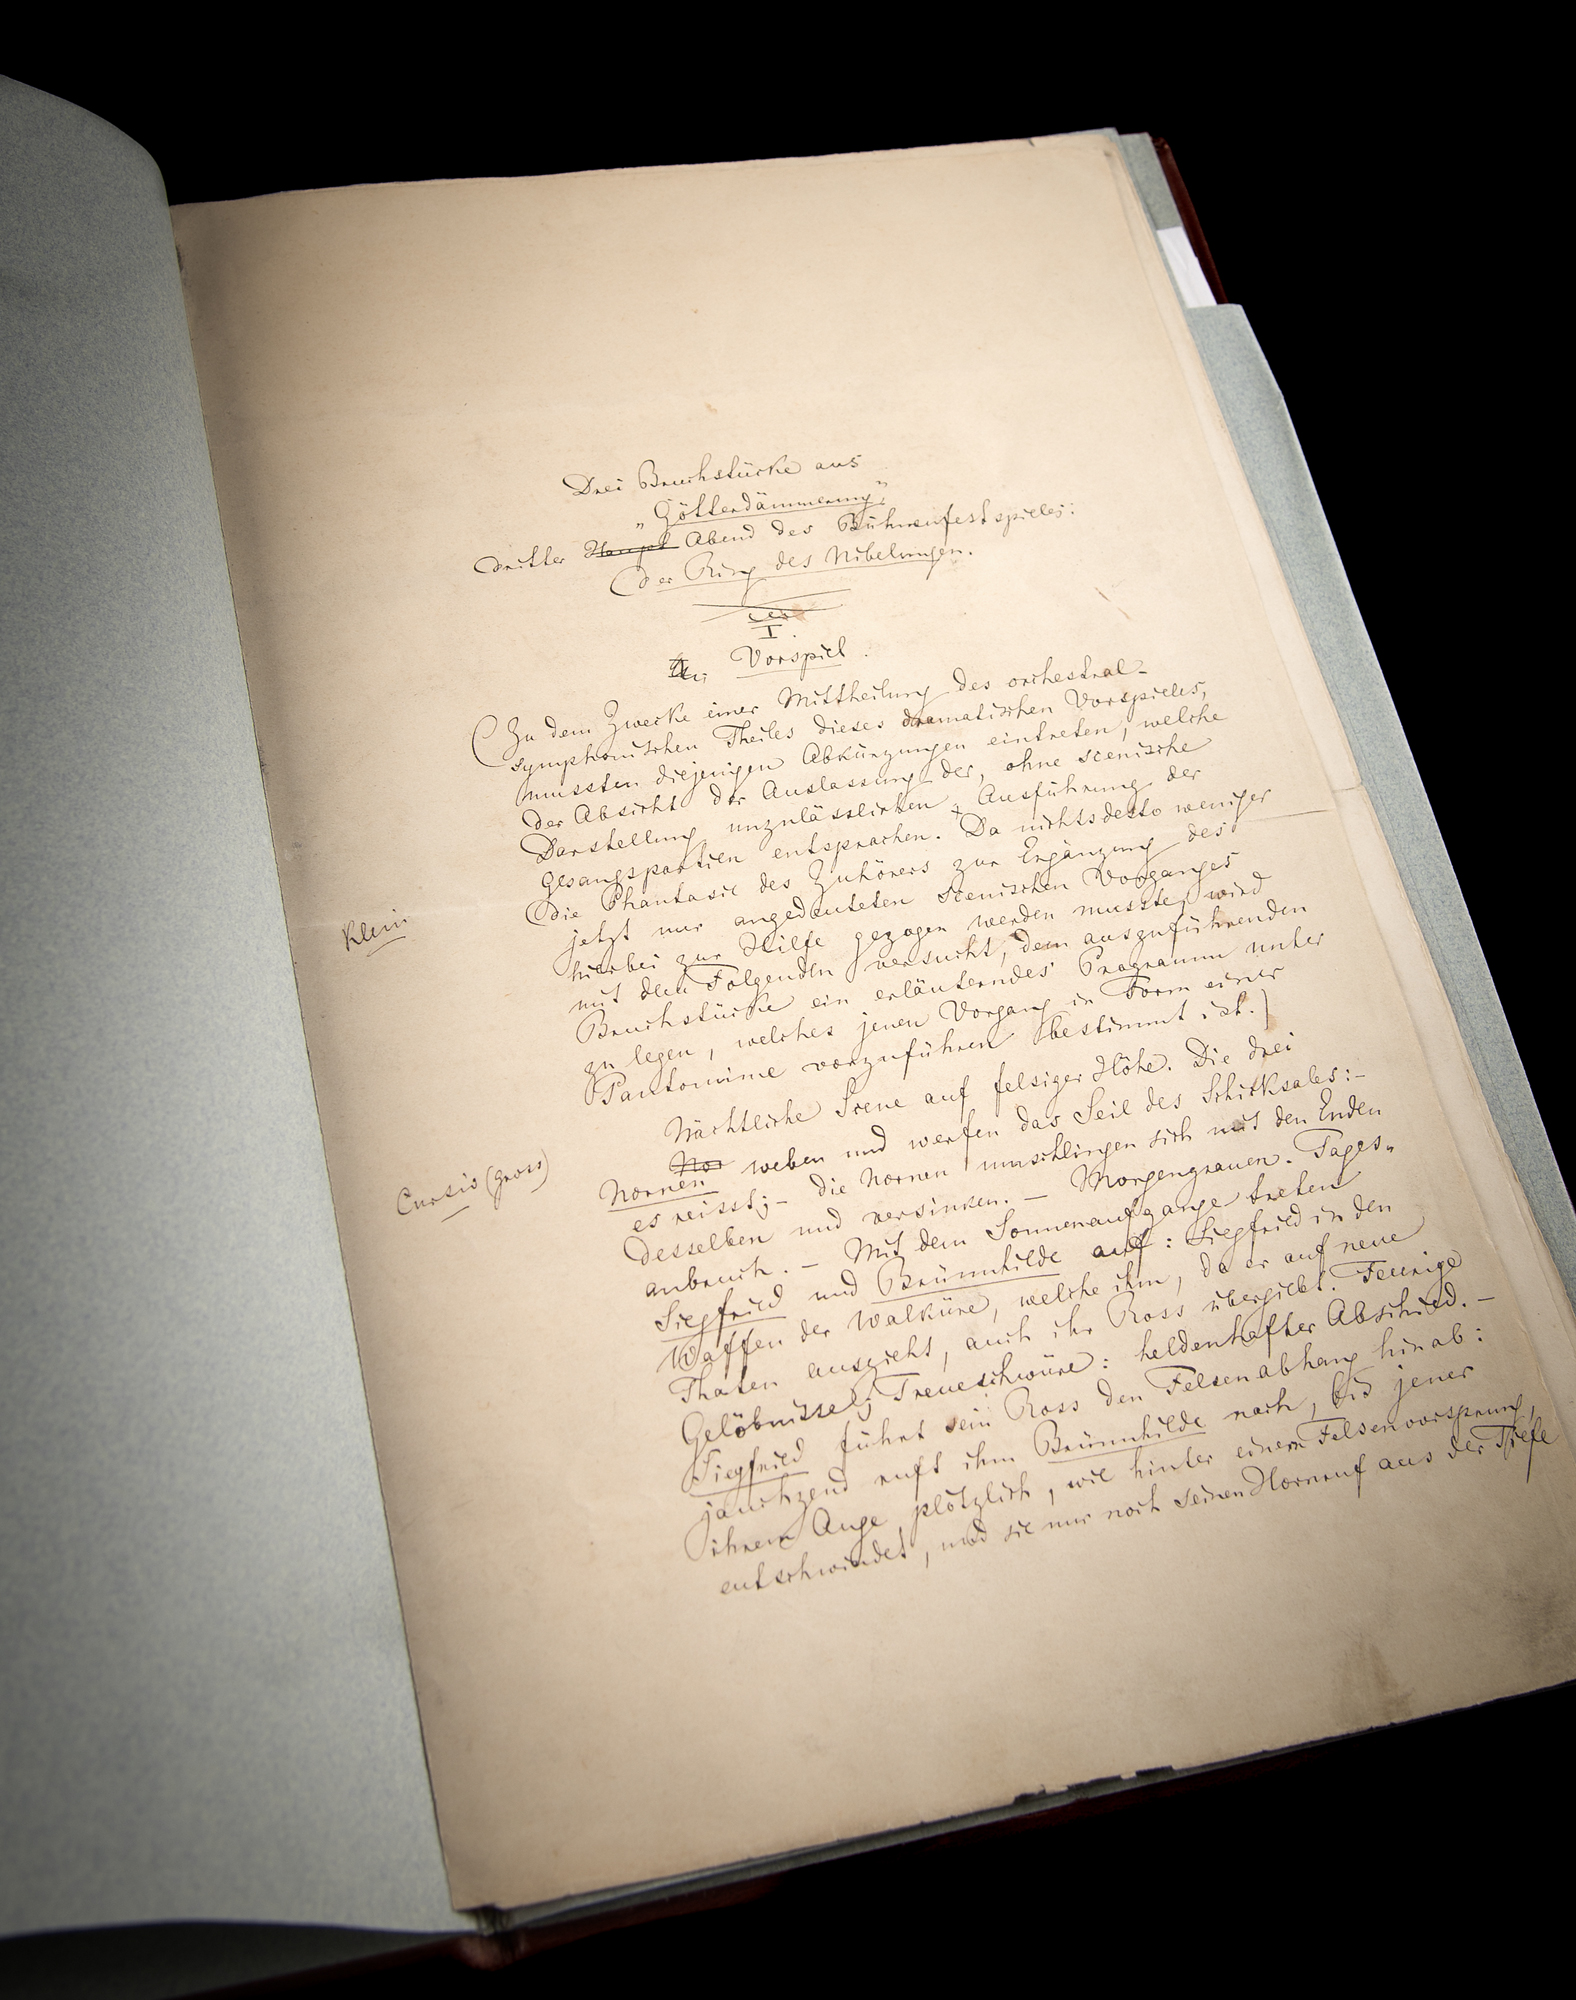 Drei Bruchstücke aus
„Götterdämmerung“,
dritter Abend des Bühnenfestspieles:
Der Ring des Nibelungen.
I.
Vorspiel.
(Zu dem Zwecke einer Mittheilung des orchestral-
symphonischen Theiles dieses dramatischen Vorspieles,
mussten diejenigen Abkürzungen eintreten, welche
der Absicht der Auslassung der, ohne scenische
Darstellung unzulässlichen, Ausführung der
Gesangspartien entsprachen. Da nichtsdesto weniger
die Phantasie des Zuhörers zur Ergänzung des
jetzt nur angedeuteten scenischen Vorganges
Klein
hierbei zur Hilfe gezogen werden musste, wird
mit dem Folgenden versucht, dem auszuführenden
Bruchstücke ein erläuterndes Programm unter
zu legen, welches jenen Vorgang in Form einer
Pantomime vorzuführen bestimmt ist.)
Nächtliche Scene auf felsiger Höhe. Die drei
Cursiv (gross)
Nor
Nornen weben und werfen das Seil des Schicksales: –
es reisst; – die Nornen umschlingen sich mit den Enden
desselben und versinken. – Morgengrauen. Tages-
anbruch. – Mit dem Sonnenaufgange treten
Siegfried und Brünnhilde auf: Siegfried in den
Waffen der Walküre, welche ihm, da er auf neue
Thaten auszieht, auch ihr Ross übergiebt. Feurige
Gelöbnisse; Treueschwüre: heldenhafter Abschied. –
Siegfried führt sein Ross den Felsenabhang hinab:
jauchzend ruft ihm Brünnhilde nach, bis jener
ihrem Auge plötzlich, wie hinter einem Felsenvorsprung,
entschwindet, und sie nur noch seinen Hornruf aus der Tiefe